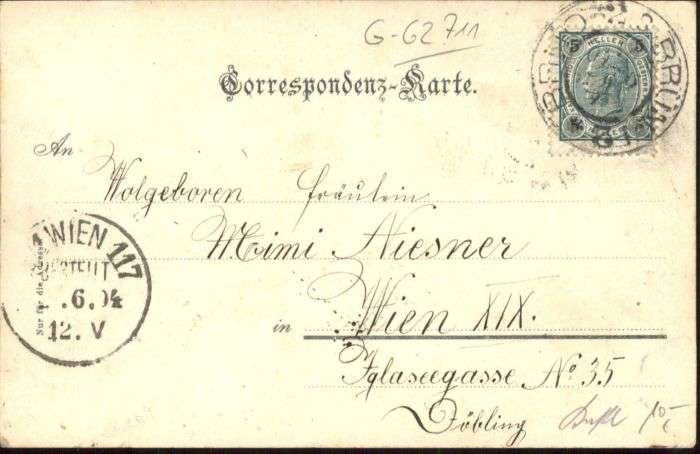 G-G2711
5 HELLER 5
Correspondenz-Karte.
An
Wolgeboren Fräulein
Mimi Niesner
in Wien XIX.
Iglaseegasse No 35
Döbling
10-
WIEN 117
BESTELLT
.6.04
12. V
Nur für die Adresse